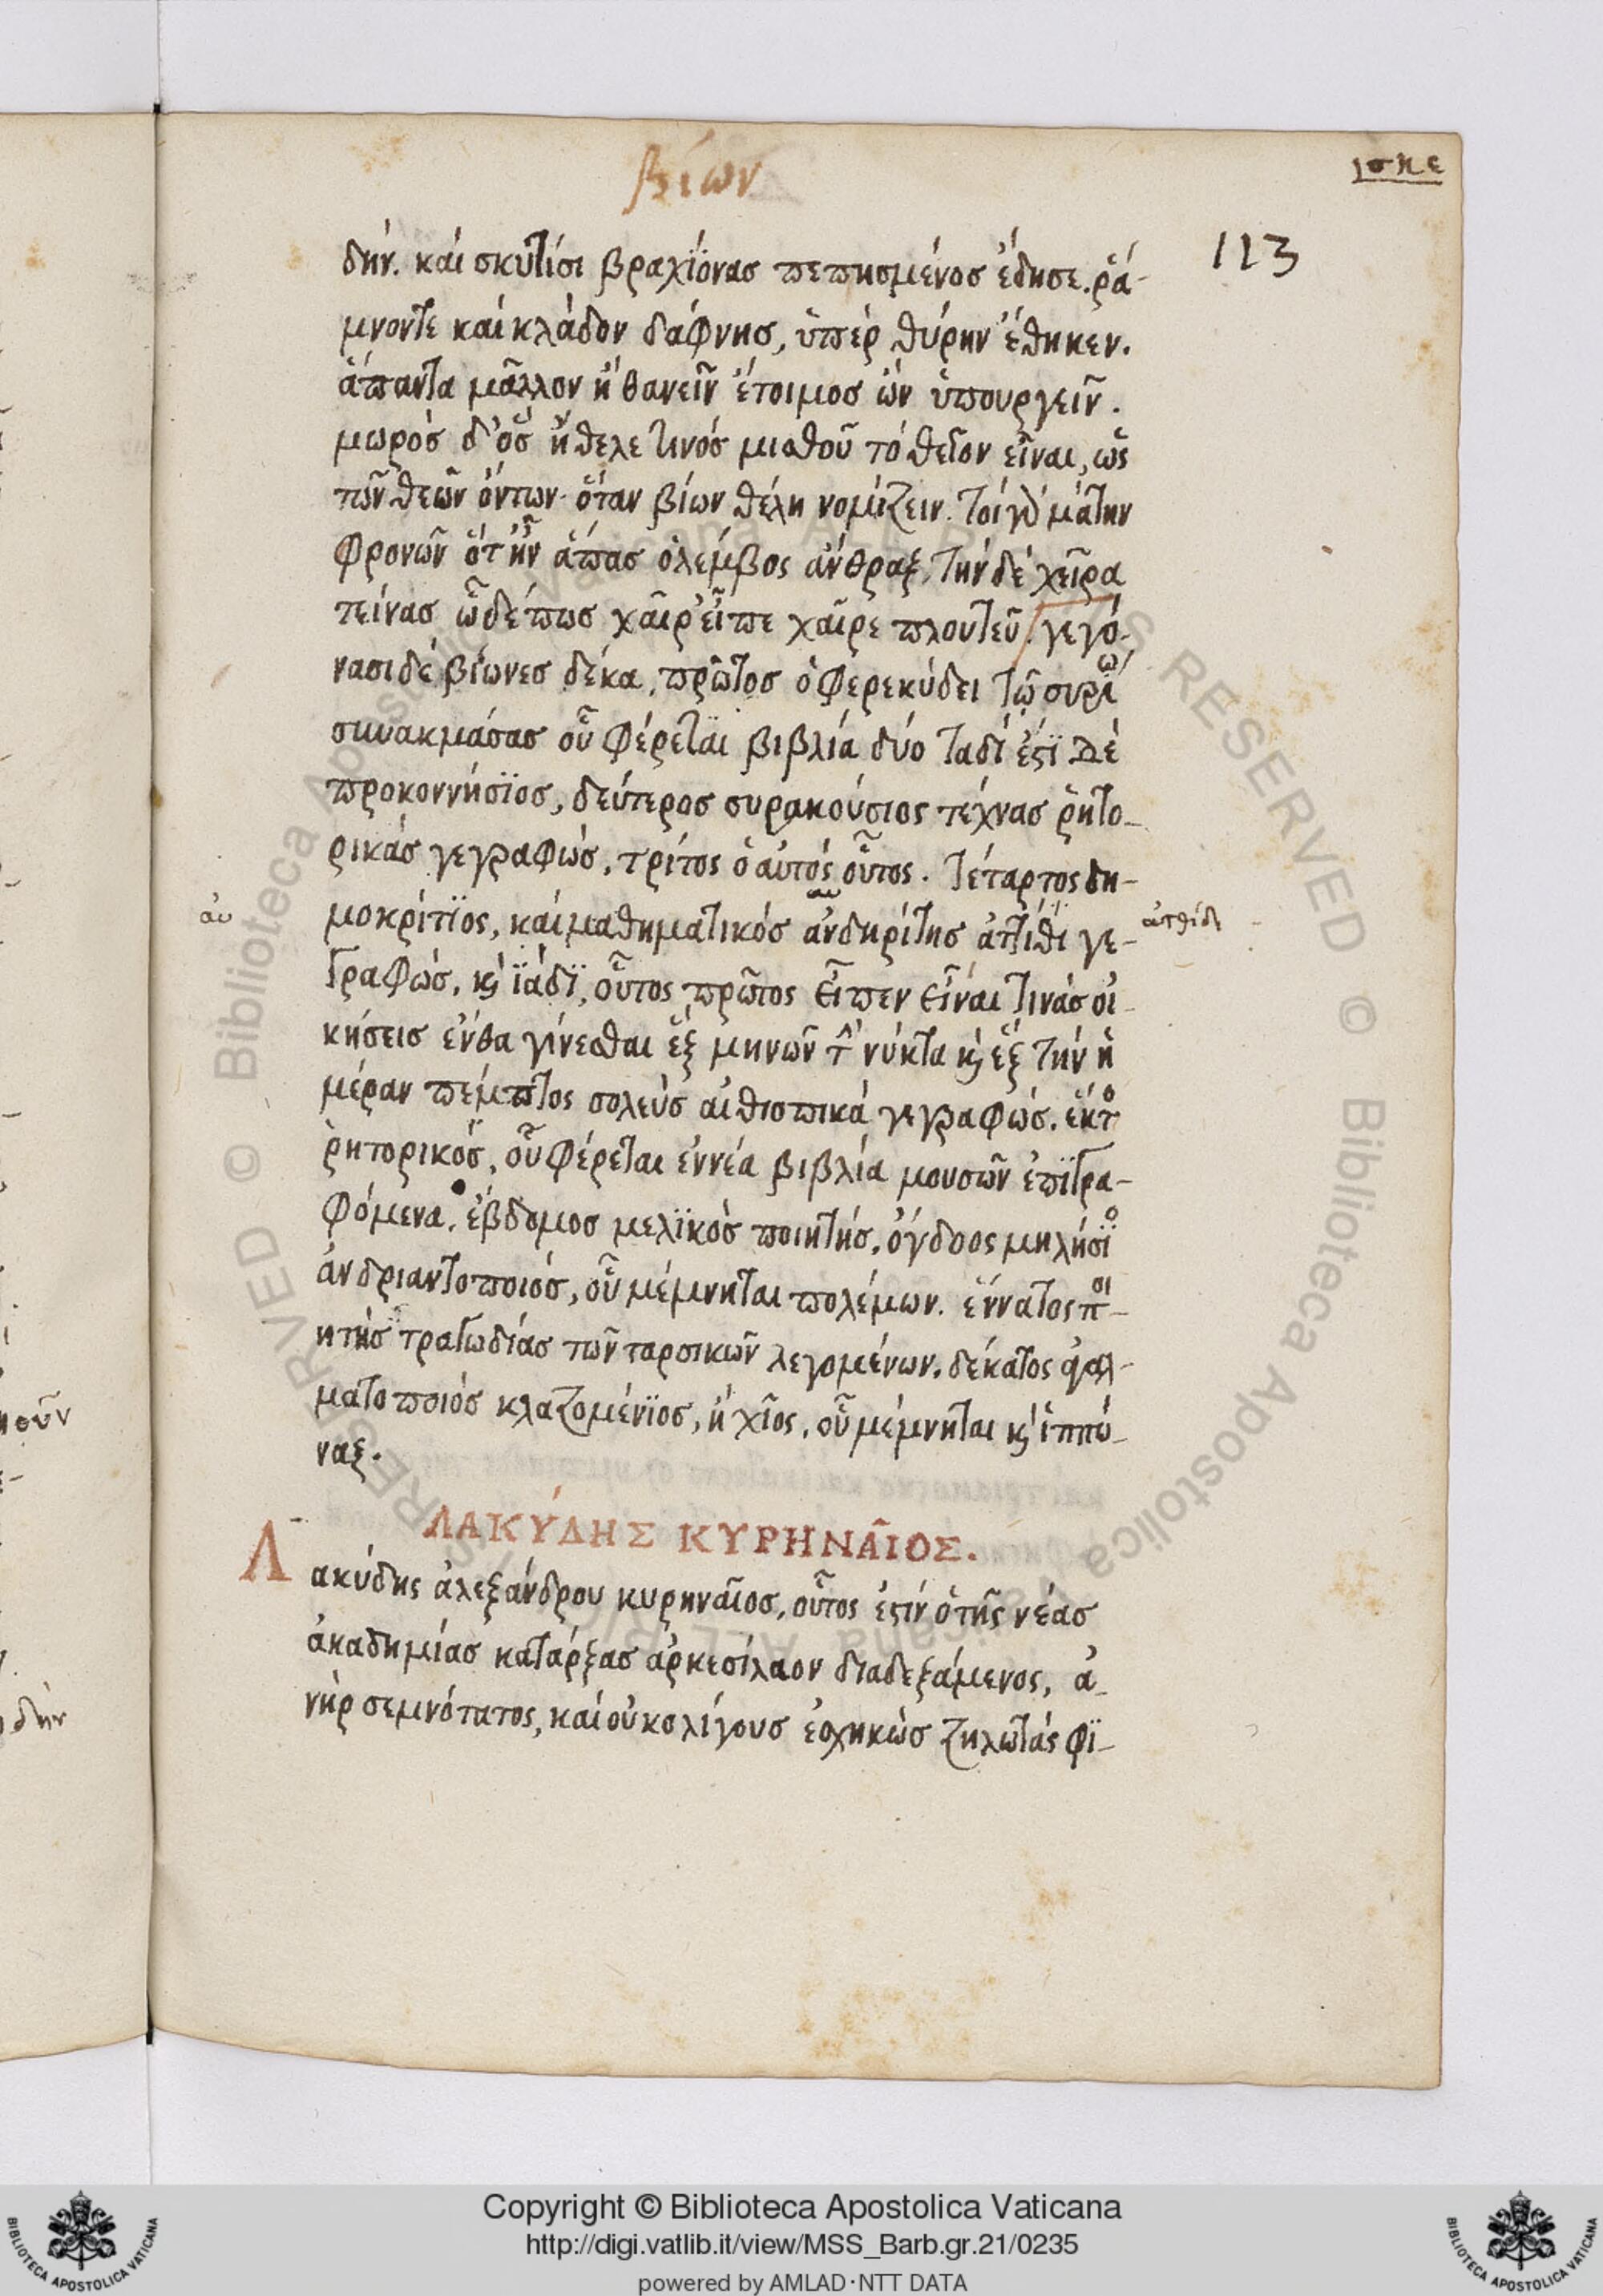 βίων
ισκε
113
δήν. καί σκυτίσι βραχϊόνασ πεπησμένοσ ἔδησε. ῥά-
μνοντε καί κλάδον δάφνησ, ὑπέρ θύρην ἔθηκεν.
ἅπαντα μᾶλλον ἤ θανεῖν ἕτοιμοσ ὤν ὑπουργεῖν.
μωρόσ δ' ὅσ ἤθελε τινόσ μισθοῦ τό θεῖον εἶναι, ὡς
τῶν θεῶν ὄντων. ὅταν βίων θέλη νομίζειν. τοιγὰρ μάτην
φρονῶν ὅτ' ἦν ἅπασ ὁλέμβος ἄνθραξ, τήν δέ χεῖρα
τείνασ ὧδέ πωσ χαῖρ' εἶπε χαῖρε πλουτεῦ. γεγό-
νασι δέ βίωνεσ δέκα, πρῶτοσ ὁ φερεκύδει τῷ συρίω
συνακμάσασ οὗ φέρεταϊ βιβλία δύο ταδί ἐστϊ δέ
προκοννήσϊοσ, δεύτεροσ συρακούσιος τέχνασ ῥητο-
ρικάσ γεγραφώσ. τρίτος ὁ αὐτός οὗτος. τέταρτος δη-
αυ
μοκρίτϊος, καί μαθηματικόσ ἀνδηρίτησ ἀτϊθϊ γε-
ἀτθίδι
γραφώσ, κ ϊάδϊ, οὗτος πρῶτος εἶπεν εἶναι τινάσ οἰ-
κήσεισ ἔνθα γίνεσθαι ἕξ μηνῶν τ νύκτα κ ἕξ τήν ἡ
μέραν πέμπτος σολεύσ αἰθιοπικά γεγραφώσ. ἕκτο
ῥητορικόσ, οὗ φέρεται ἐννέα βιβλία μουσῶν ἐπϊγρα-
φόμενα. ἕβδομοσ μελϊκόσ ποιητήσ. ὄγδοος μηλήσϊο
ἀνδριαντοποιόσ, οὗ μέμνηται πολέμων. ἔννατος ποι-
ητήσ τραγωδίασ τῶν ταρσικῶν λεγομένων. δέκατος ἀγαλ-
ματοποιόσ κλαζομένϊοσ, ἤ χῖος, οὗ μέμνηται κ ἱππώ-
ναξ.
ΛΑΚΎΔΗΣ ΚΥΡΗΝΑῖΟΣ.
Λακύδης ἀλεξάνδρου κυρηναῖοσ, οὗτος ἐστίν ὁ τῆς νέασ
ἀκαδημίασ κατάρξασ ἀρκεσίλαον διαδεξάμενος, ἀ-
νήρ σεμνότατος, καί οὐκ ολίγουσ ἐσχηκώσ ζηλωτάς φϊ-
ουν
δην
Copyright © Biblioteca Apostolica Vaticana
http://digi.vatlib.it/view/MSS_Barb.gr.21/0235
powered by AMLAD·NTT DATA
BIBLIOTECA APOSTOLICA VATICANA
BIBLIOTECA APOSTOLICA VATICANA